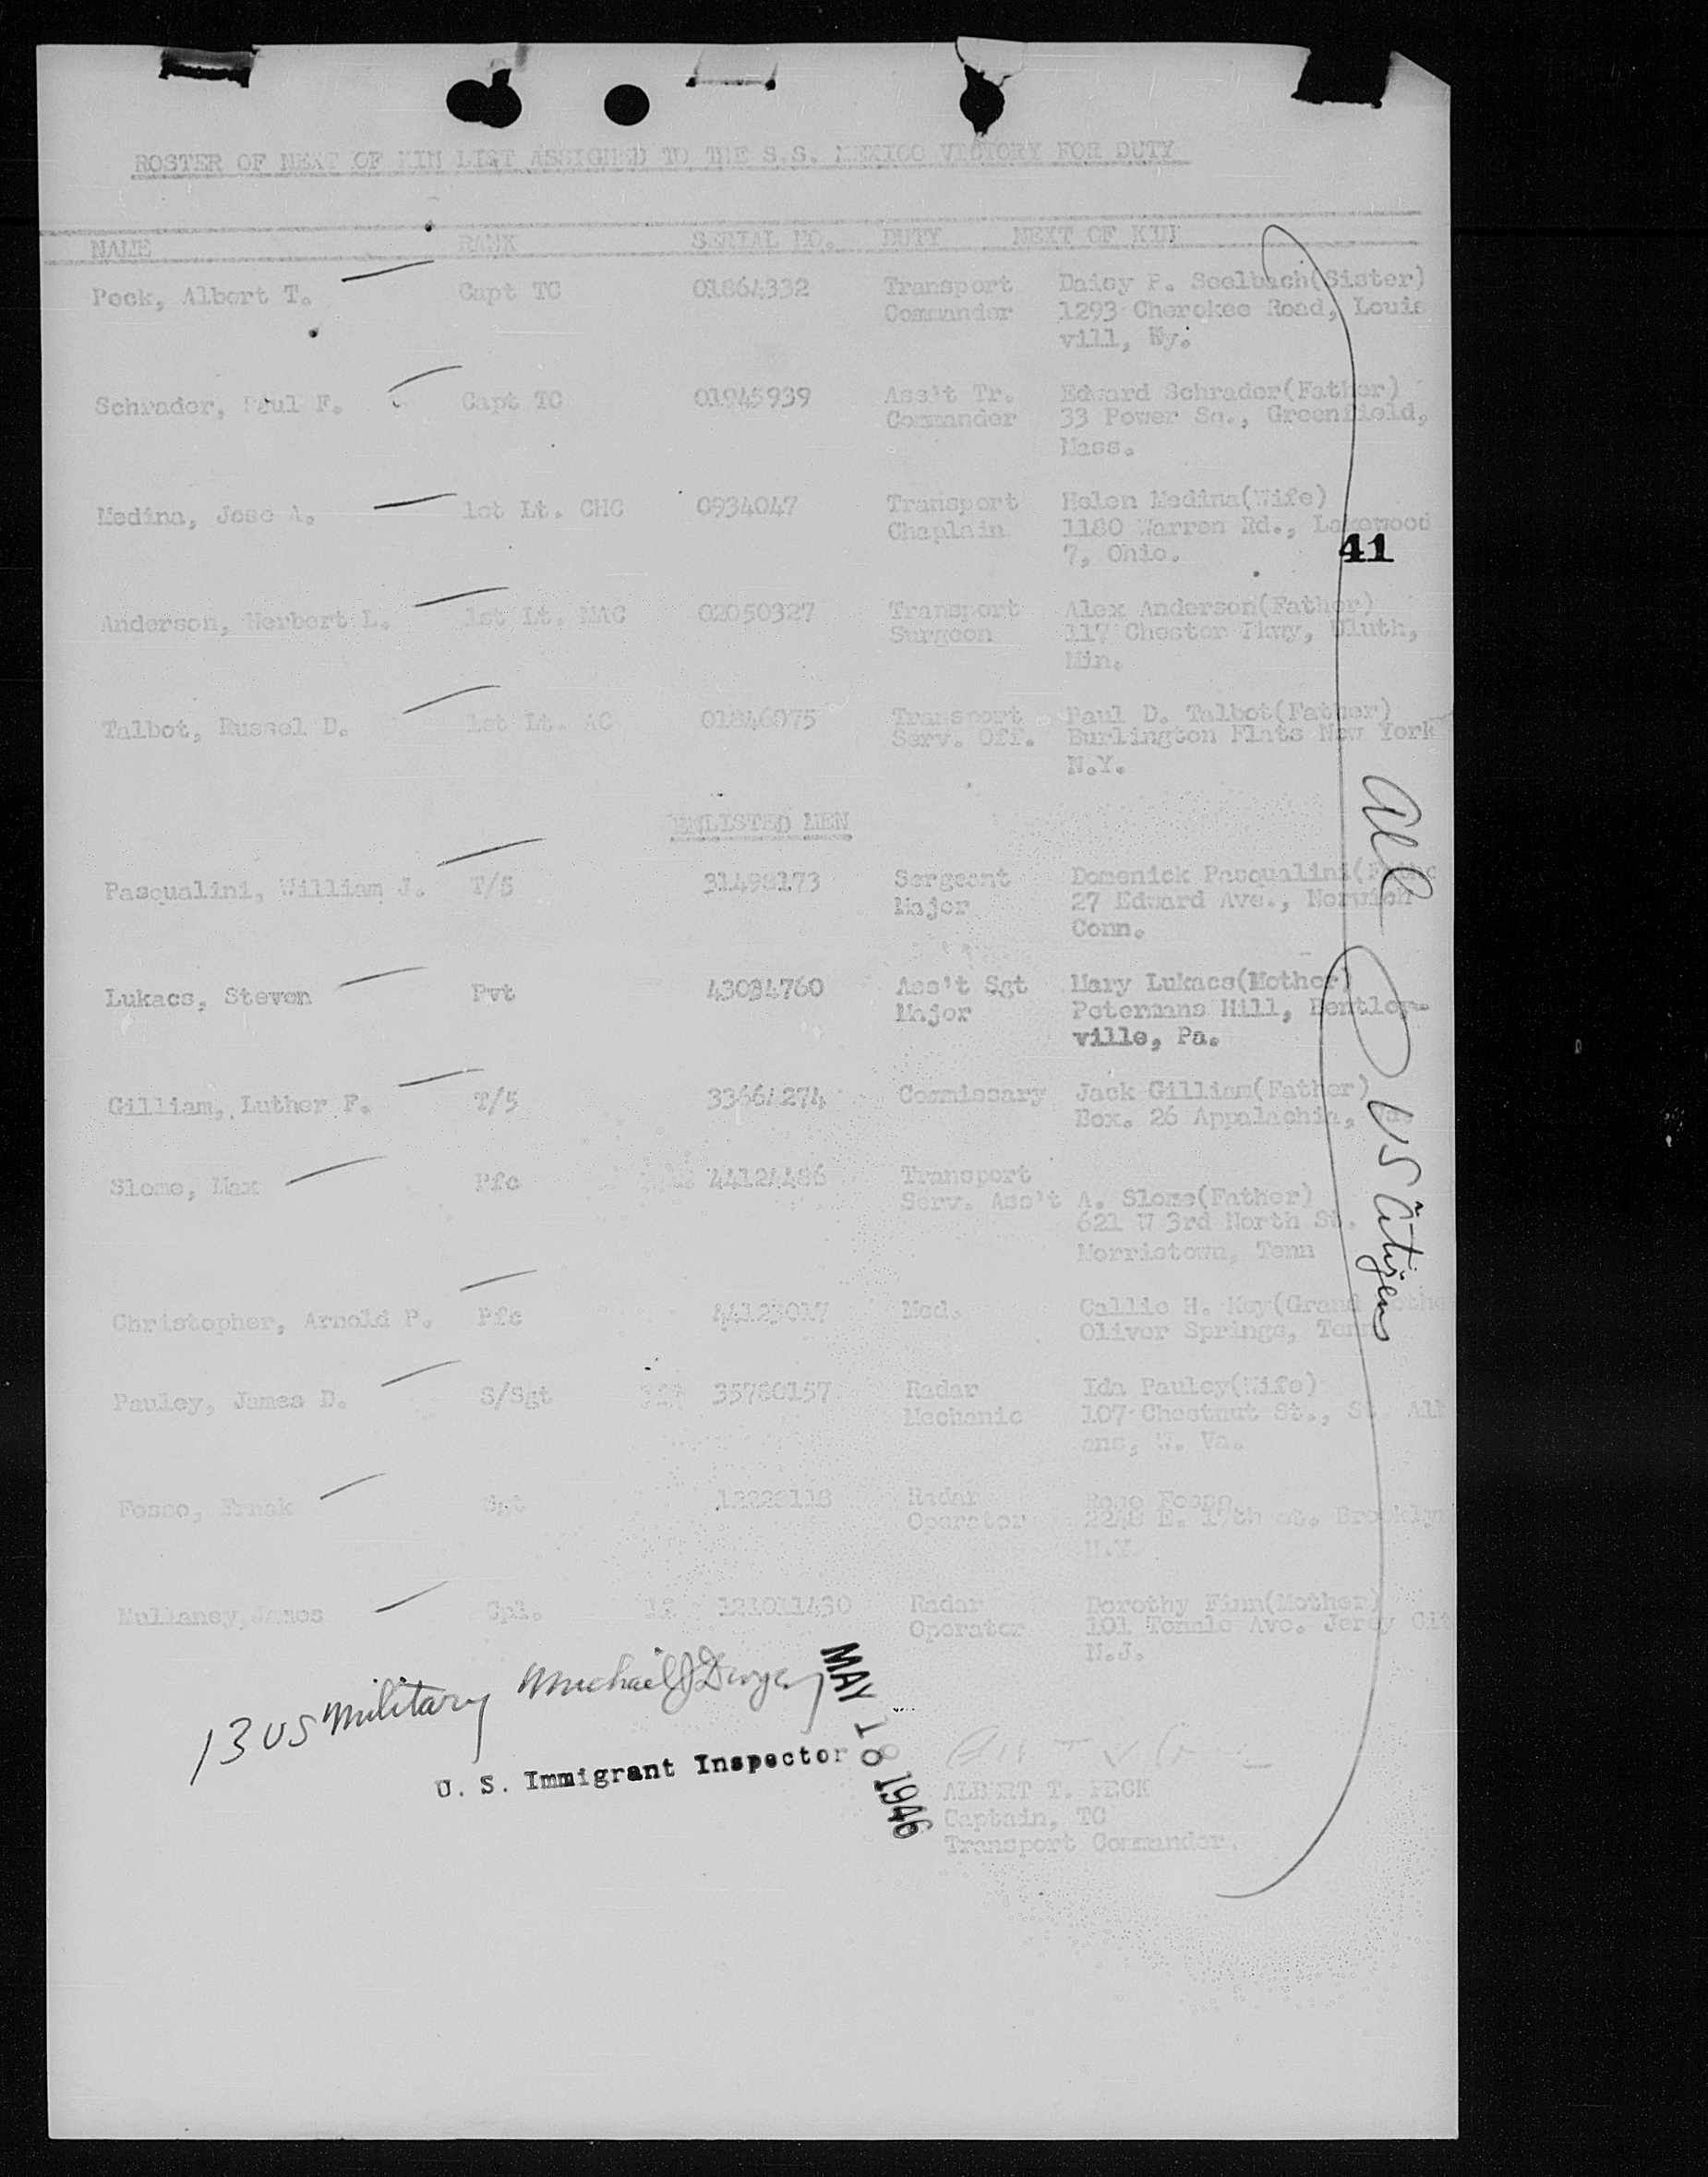 ROSTER OF NEXT OF KIN LIST ASSIGNED TO THE S.S. MEXICO VICTORY FOR DUTY
NAME RANK SERIAL NO. DUTY NEXT OF KIN
Peck, Albert T. Capt TC 01864332 Transport Daisy P. Seelbach(Sister)
Commander 1293 Cherokee Road, Louis
vill, Ky.
Schrader, Paul F. Capt TC 01945939 Ass't Tr. Edward Schrader(Father)
Commander 33 Power Sq., Greenfield,
Mass.
Medina, Jose A. 1st Lt. CHC 0934047 Transport Helen Medina(Wife)
Chaplain 1180 Warren Rd., Lakewood
7, Ohio.
41
Anderson, Herbert L. 1st Lt. MAC 02050327 Transport Alex Anderson(Father)
Surgeon 117 Chester Pkwy, Duluth,
Min.
Talbot, Russel D. 1st Lt. AC 01846075 Transport Paul D. Talbot(Father)
Serv. Off. Burlington Flats New York
N.Y.
ENLISTED MEN
Pasqualini, William J. T/5 31498173 Sergeant Domenick Pasqualini(
Major 27 Edward Ave., Norwich
Conn.
Lukacs, Steven Pvt 43034760 Ass't Sgt Mary Lukacs(Mother)
Major Petermans Hill, Bentley-
ville, Pa.
Gilliam, Luther F. T/5 33664274 Commissary Jack Gilliam(Father)
Box. 26 Appalachia,
Slome, Max Pfc 44124486 Transport
Serv. Ass't A. Slome(Father)
621 W 3rd North St.
Morristown, Tenn
Christopher, Arnold P. Pfc 44123017 Med. Callie H. Key(Grand
Oliver Springs, Tenn
Pauley, James D. S/Sgt 35780157 Radar Ida Pauley(Wife)
Mechanic 107 Chestnut St., St. Alb
ans, W. Va.
Fosso, Frnak Sgt 12228118 Radar Rose Fosso
Operator 2248 E. 17th st. Brooklyn
N.Y.
Mullaney, James Cpl. 121011430 Radar Dorothy Finn(Mother)
Operator 101 Tonnle Ave. Jersy Cit
N.J.
All US Citizens
13 US Military Michael J Dwyer
U. S. Immigrant Inspector
MAY 18 1946
ALBERT T. PECK
Captain, TC
Transport Commander.